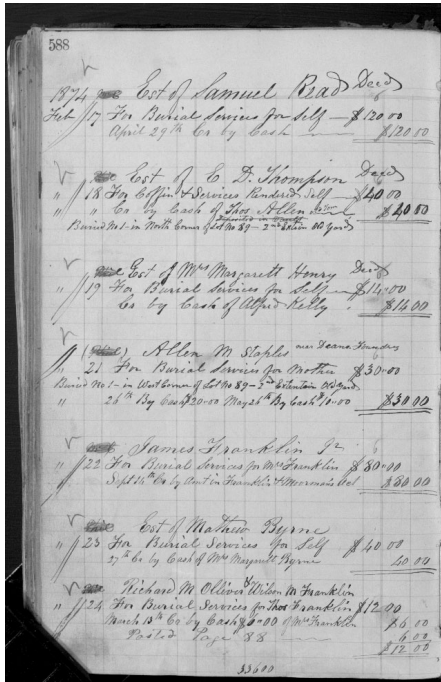 588
1874 Est of Samuel Read Decd
Feb 17 For Burial Services for Self $120.00
April 29th Cr by Cash $120.00
Est of C. D. Thompson Decd
" 18 For Coffin & Services Rendered Self $40.00
" " Cr. by Cash of Thos Allen $40.00
Deposited in Vault
Buried No 1 - in North Corner of Lot No 89 - 2nd Exten Old Yard
Est of Mrs Margarett Henry Decd
" 19 For Burial Services for Self $14.00
Cr by Cash of Alfred Kelly $14.00
Allen M Staples near Deane Foundry
" 21 For Burial Services for Mother $30.00
Buried No 1 - in West Corner of Lot No 89 - 2nd Extention Old Yard
" 26th By Cash $20.00 May 26th By Cash $10.00 $30.00
James Franklin Jr
" 22 For Burial Services for Mrs Franklin $80.00
Sept 14th Cr by Amt in Franklin & Moorman's Act $80.00
Est of Mathew Byrne
" 23 For Burial Services for Self $40.00
27th Cr by Cash of Mrs Margarett Byrne 40.00
Richard M Ollivis & Wilson M Franklin
" 24 For Burial Services for Thos Franklin $12.00
March 13th Cr by Cash $6.00 of Mrs Franklin $6.00
Posted Page 88 6.00
$12.00
33600